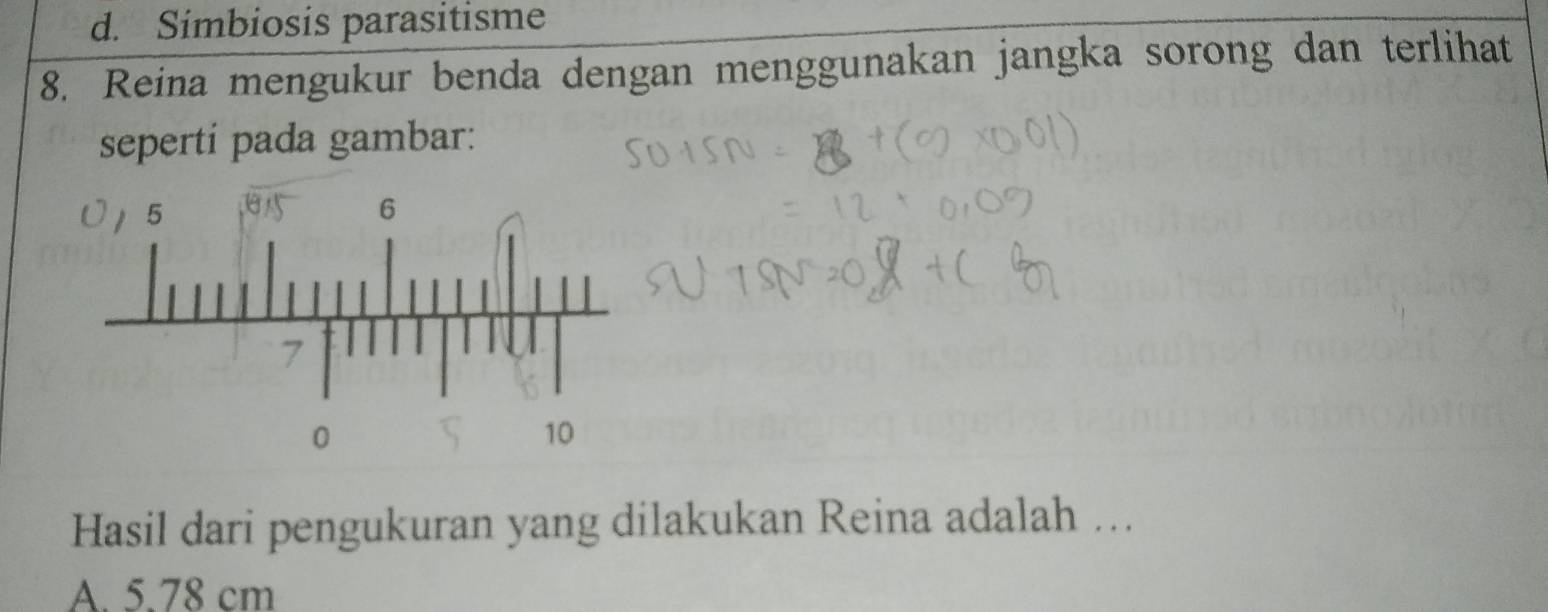 d. Simbiosis parasitisme
8. Reina mengukur benda dengan menggunakan jangka sorong dan terlihat
seperti pada gambar:
+(9 x0,01)
0, 5 6
= 12 + 0,09
7
0 5 10
Hasil dari pengukuran yang dilakukan Reina adalah ...
A. 5,78 cm